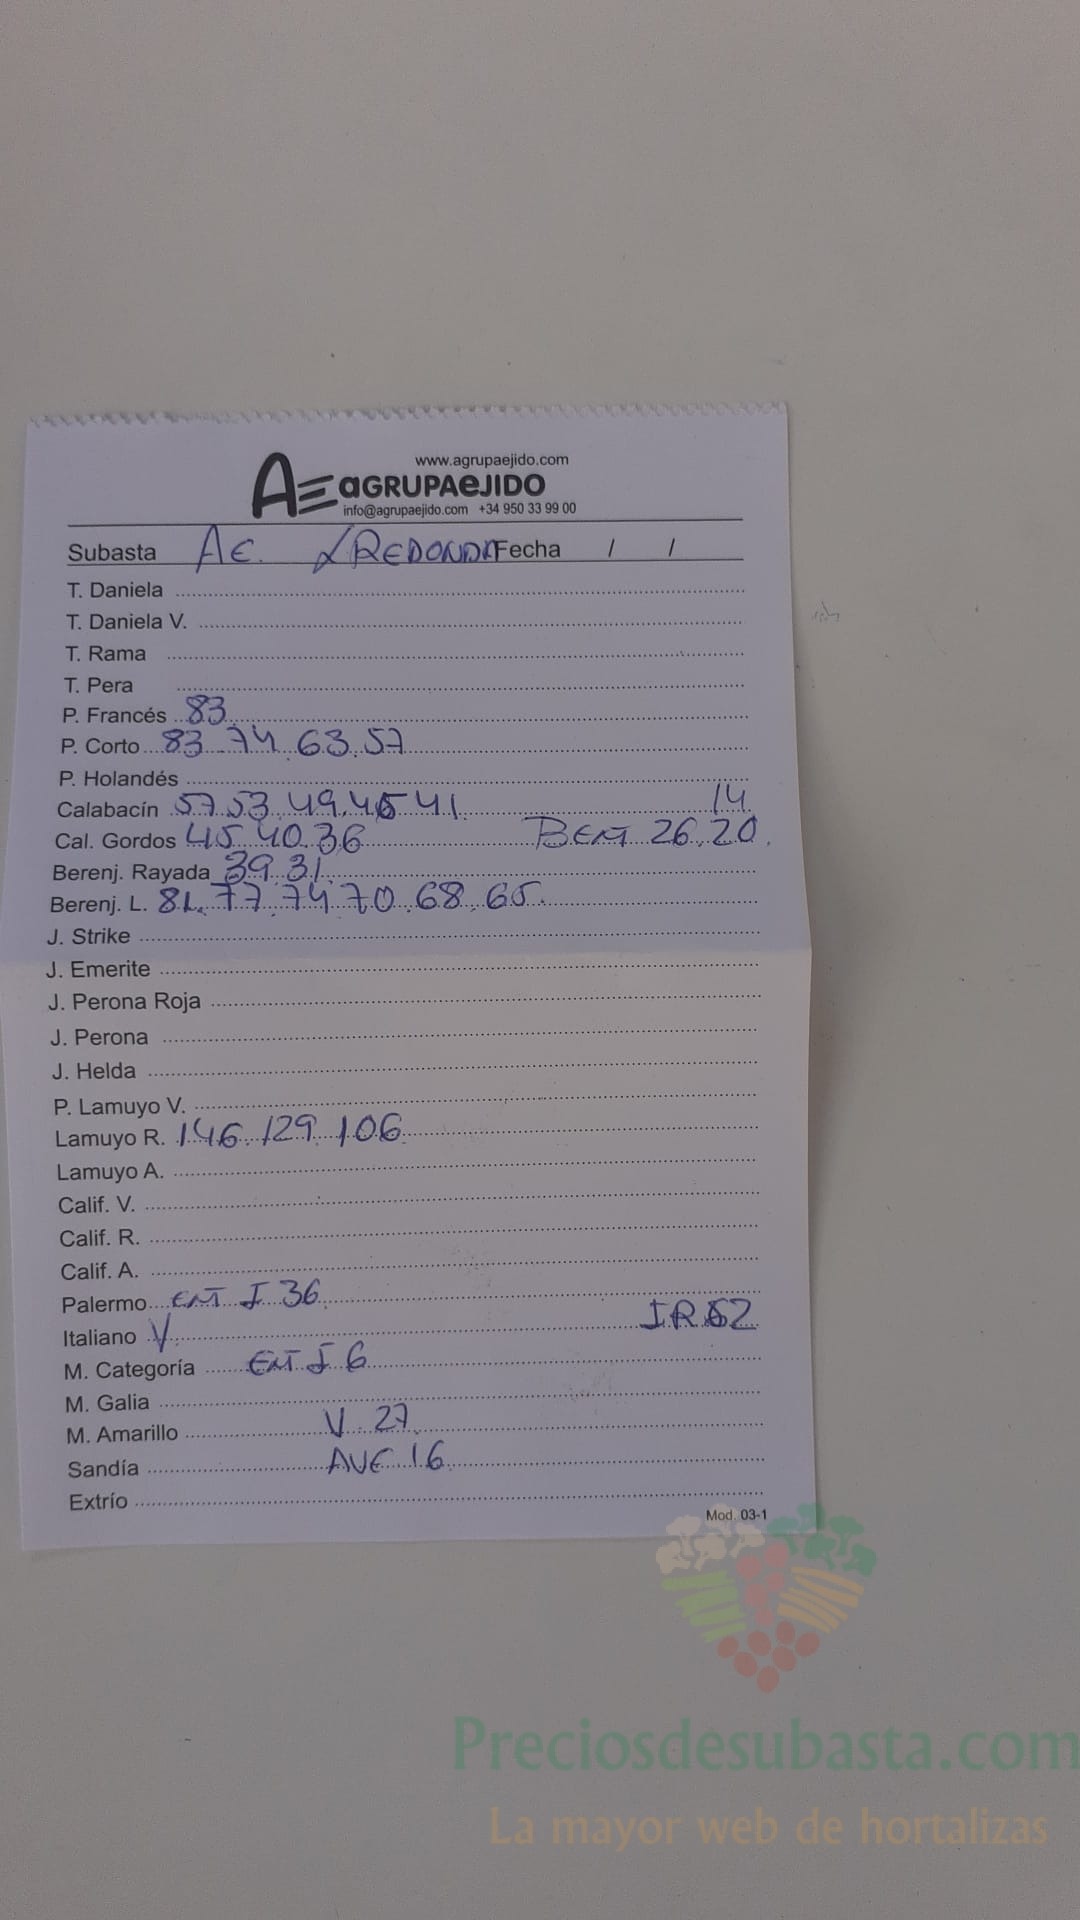 www.agrupaejido.com
AE aGRUPAeJIDO
info@agrupaejido.com +34 950 33 99 00
Subasta AE. LREDONDA Fecha / /
T. Daniela
T. Daniela V.
T. Rama
T. Pera
P. Francés 83
P. Corto 83 74 63 57
P. Holandés
Calabacín 57 53 49 45 41 14
Cal. Gordos 45 40 36 BEM 26 20
Berenj. Rayada 39 31
Berenj. L. 81 77 74 70 68 65
J. Strike
J. Emerite
J. Perona Roja
J. Perona
J. Helda
P. Lamuyo V.
Lamuyo R. 146 129 106
Lamuyo A.
Calif. V.
Calif. R.
Calif. A.
Palermo I 36
Italiano V IR 52
M. Categoría I 6
M. Galia
M. Amarillo V 27
Sandía AVE 16
Extrío
Mod. 03-1
Preciosdesubasta.com
La mayor web de hortalizas